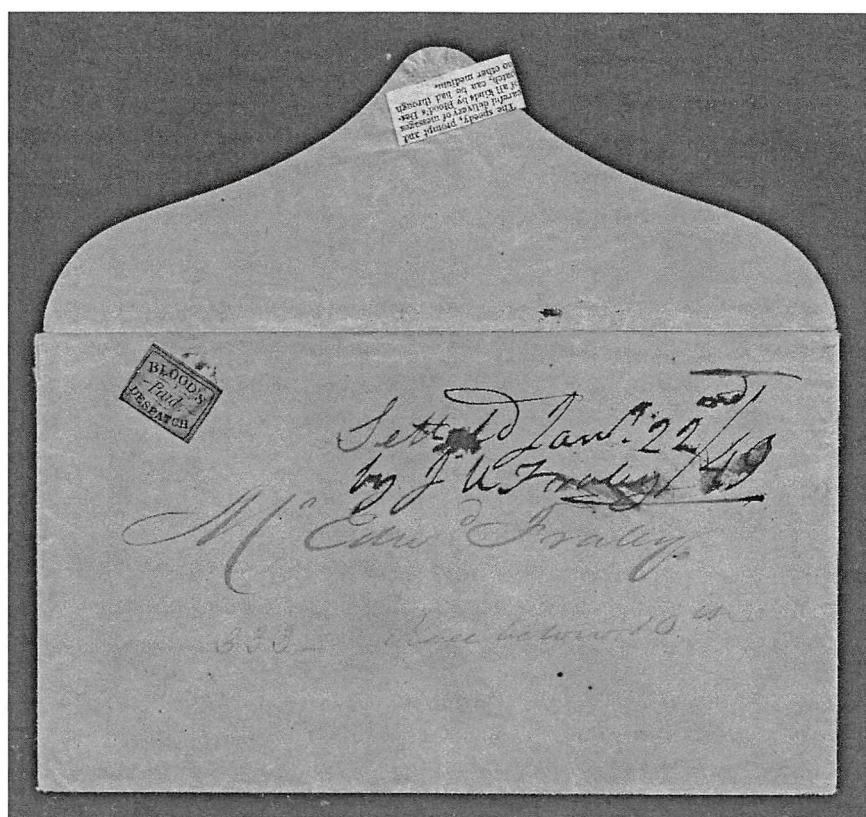 The speedy, prompt and
careful delivery of messages
of all kinds by Blood's Des-
patch, can be had through
no other medium.
BLOOD'S
Paid
DESPATCH
Settld Jany. 22nd/49
by J U Fraley
Mr Edwd Fraley
333 Race 10th